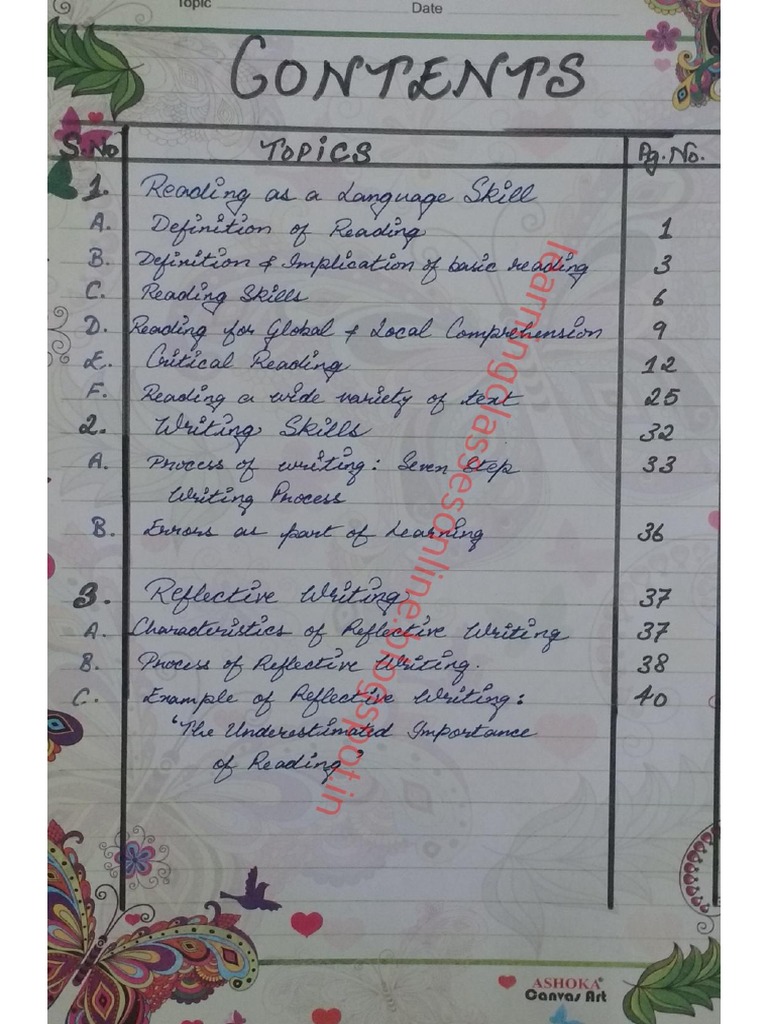 Topic Date
CONTENTS
S.No TOPICS Pg.No.
1. Reading as a Language Skill
A. Definition of Reading 1
B. Definition & Implication of basic reading 3
C. Reading Skills 6
D. Reading for Global & Local Comprehension 9
E. Critical Reading 12
F. Reading a wide variety of text 25
2. Writing Skills 32
A. Process of writing: Seven Step 33
Writing Process
B. Errors as part of Learning 36
3. Reflective Writing 37
A. Characteristics of Reflective Writing 37
B. Process of Reflective Writing. 38
C. Example of Reflective Writing: 40
'The Underestimated Importance
of Reading'
learningclassesonline.blogspot.in
ASHOKA®
Canvas Art